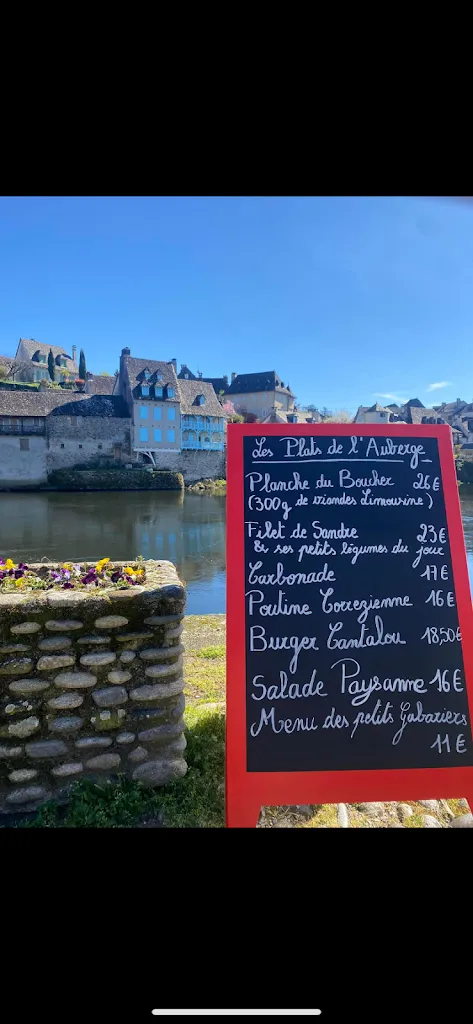 Les Plats de l'Auberge
Planche du Boucher 26€
(300g de viandes Limousine)
Filet de Sandre 23€
& ses petits légumes du jour
Carbonade 17€
Poutine Correzienne 16€
Burger Cantalou 18,50€
Salade Paysanne 16€
Menu des petits Gabariers
11€